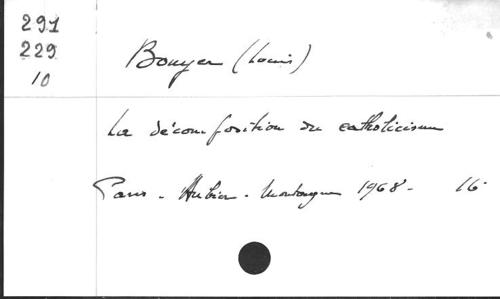 291
229
10
Bouyer (Louis)
La décomposition du catholicisme
Paris - Aubier - Montaigne 1968 - 16